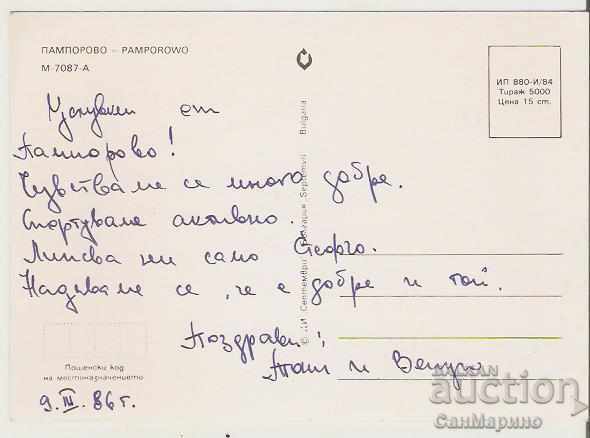 ПАМПОРОВО – PAMPOROWO
М-7087-А
ИП 880-И/84
Тираж 5000
Цена 15 ст.
от
Пампорово!
Чувстваме се много добре.
Спортуваме активно.
Липсва ни само Георго.
Надяваме се, че е добре и той.
Поздрави:
и
Пощенски код
на местоназначението
9.III.86 г.
© ДИ „Септември“ България „Septemvri“ Bulgaria
BALKAN
auction
СанМарино